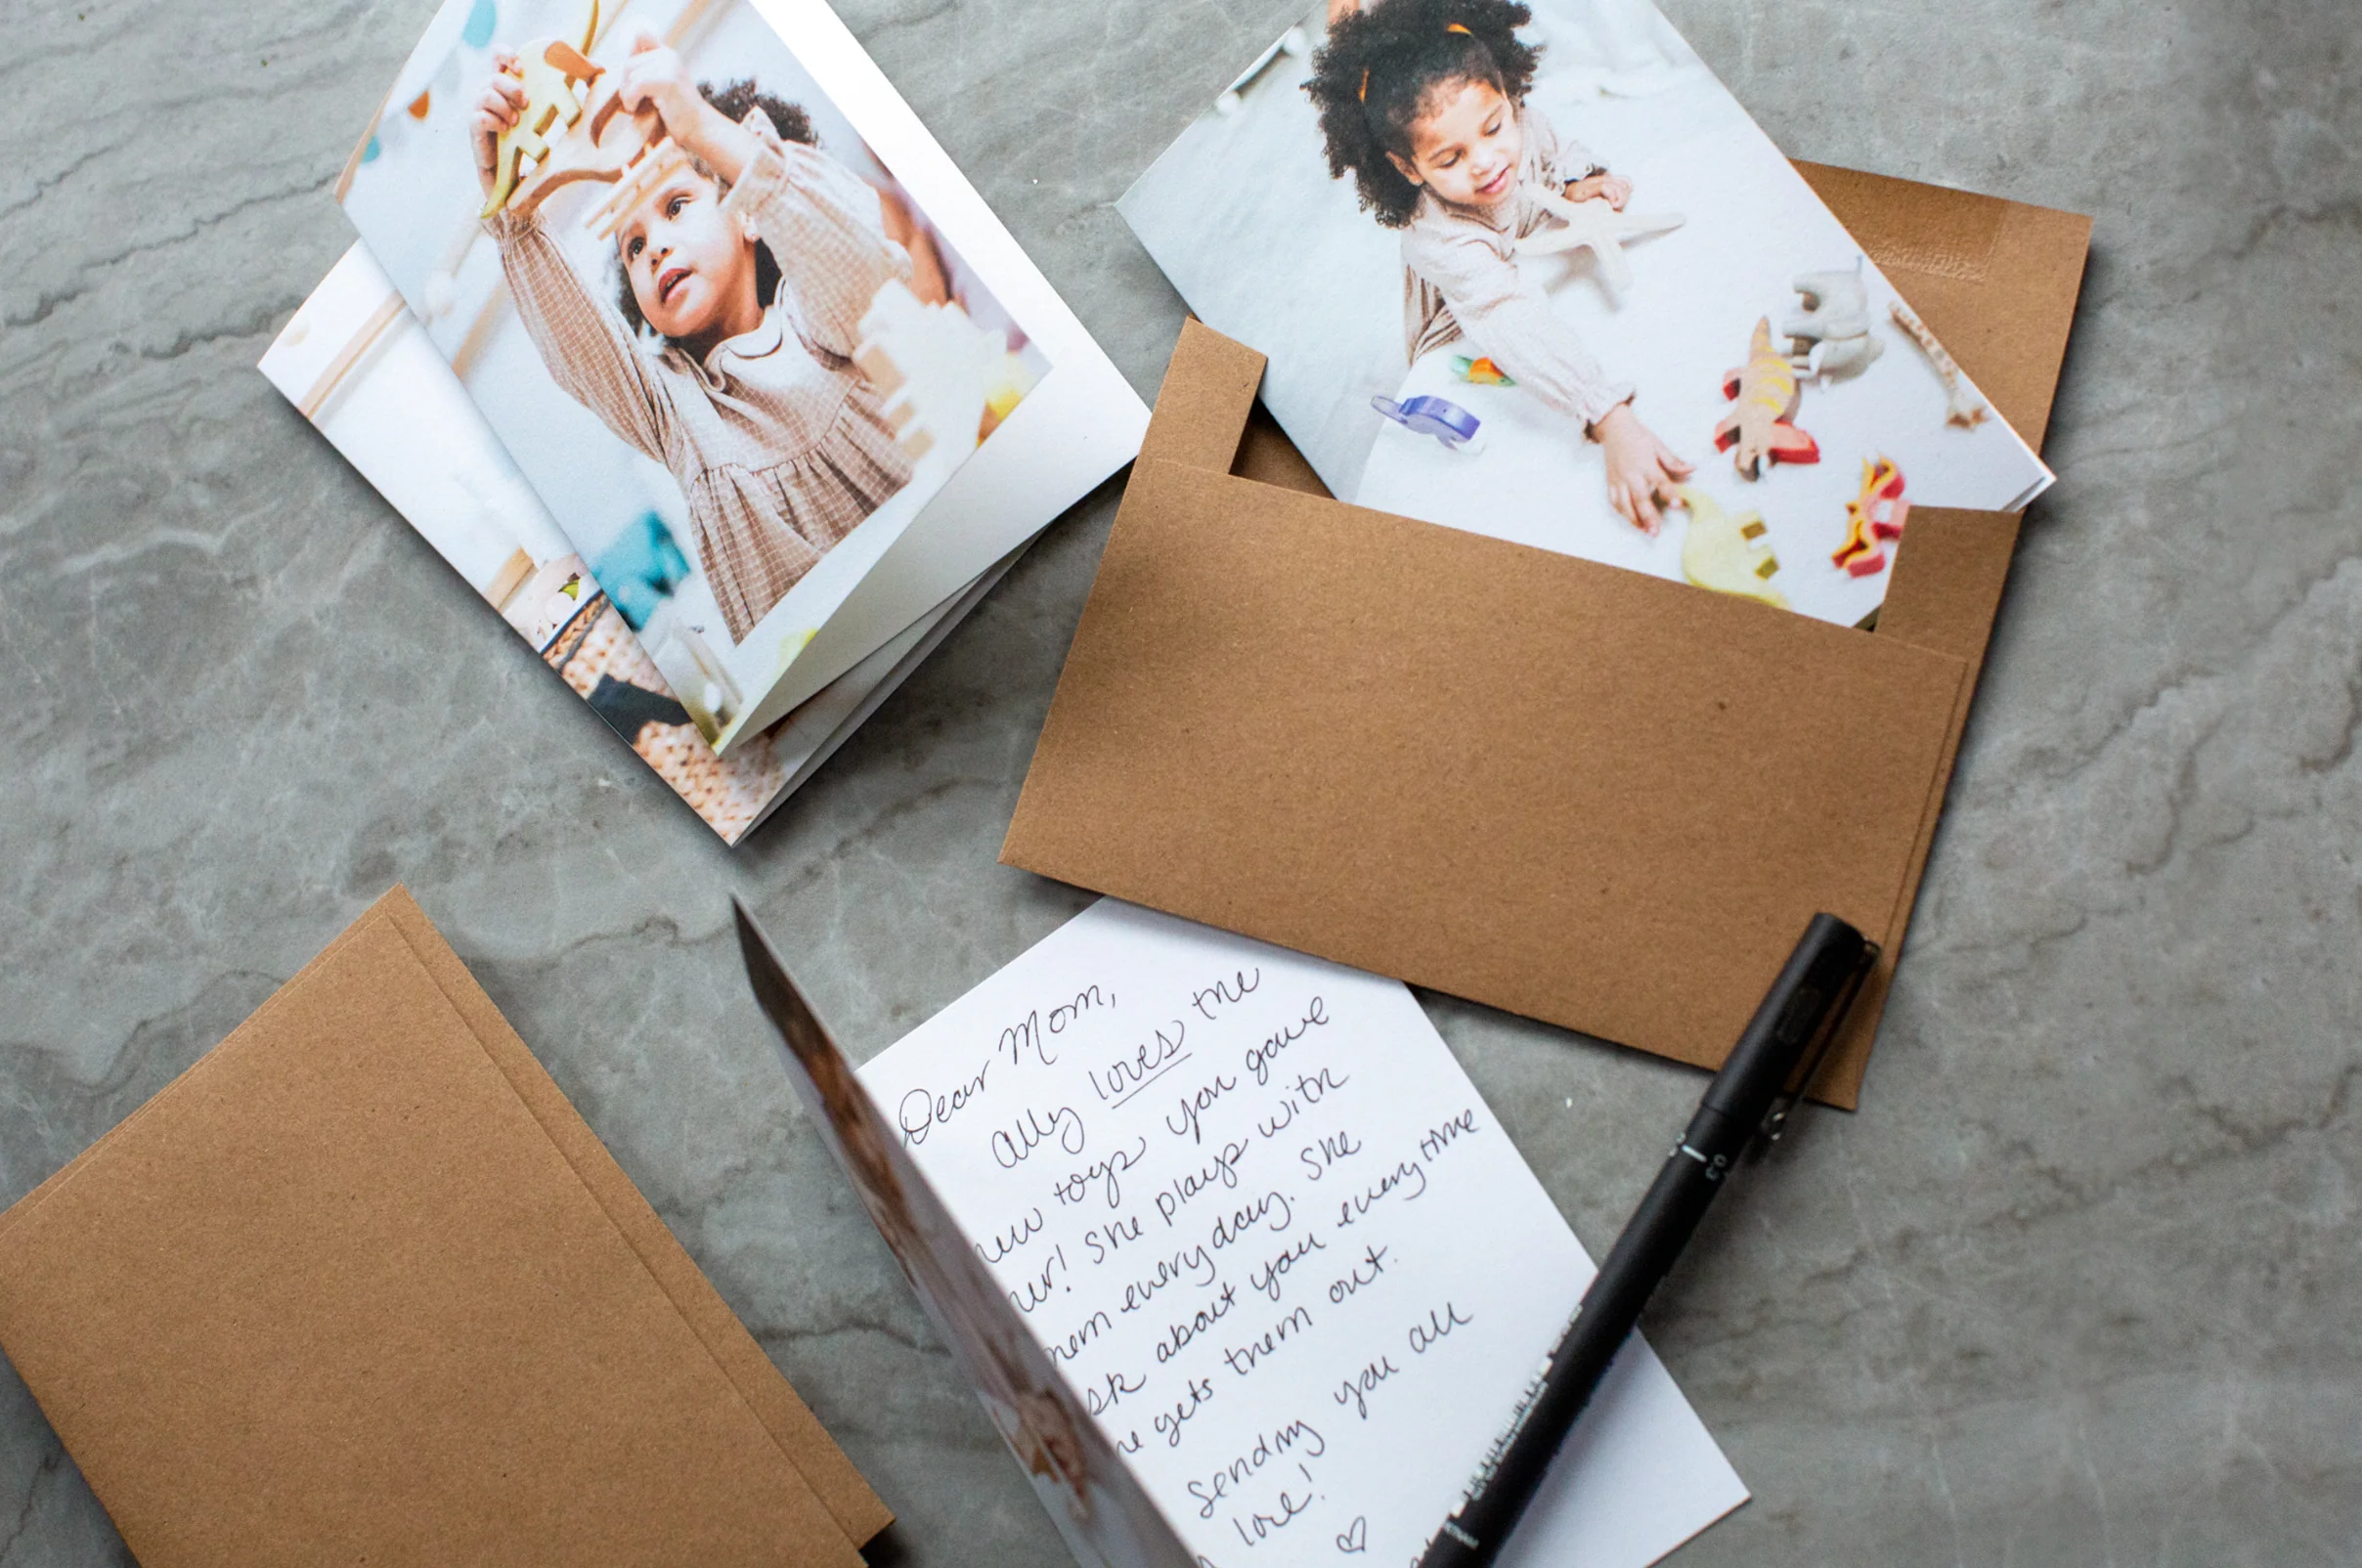 Dear Mom,
Ally loves the
new toys you gave
her! She plays with
them everyday. She
ask about you everytime
he gets them out.
Sending you all
love!
♡
0.3